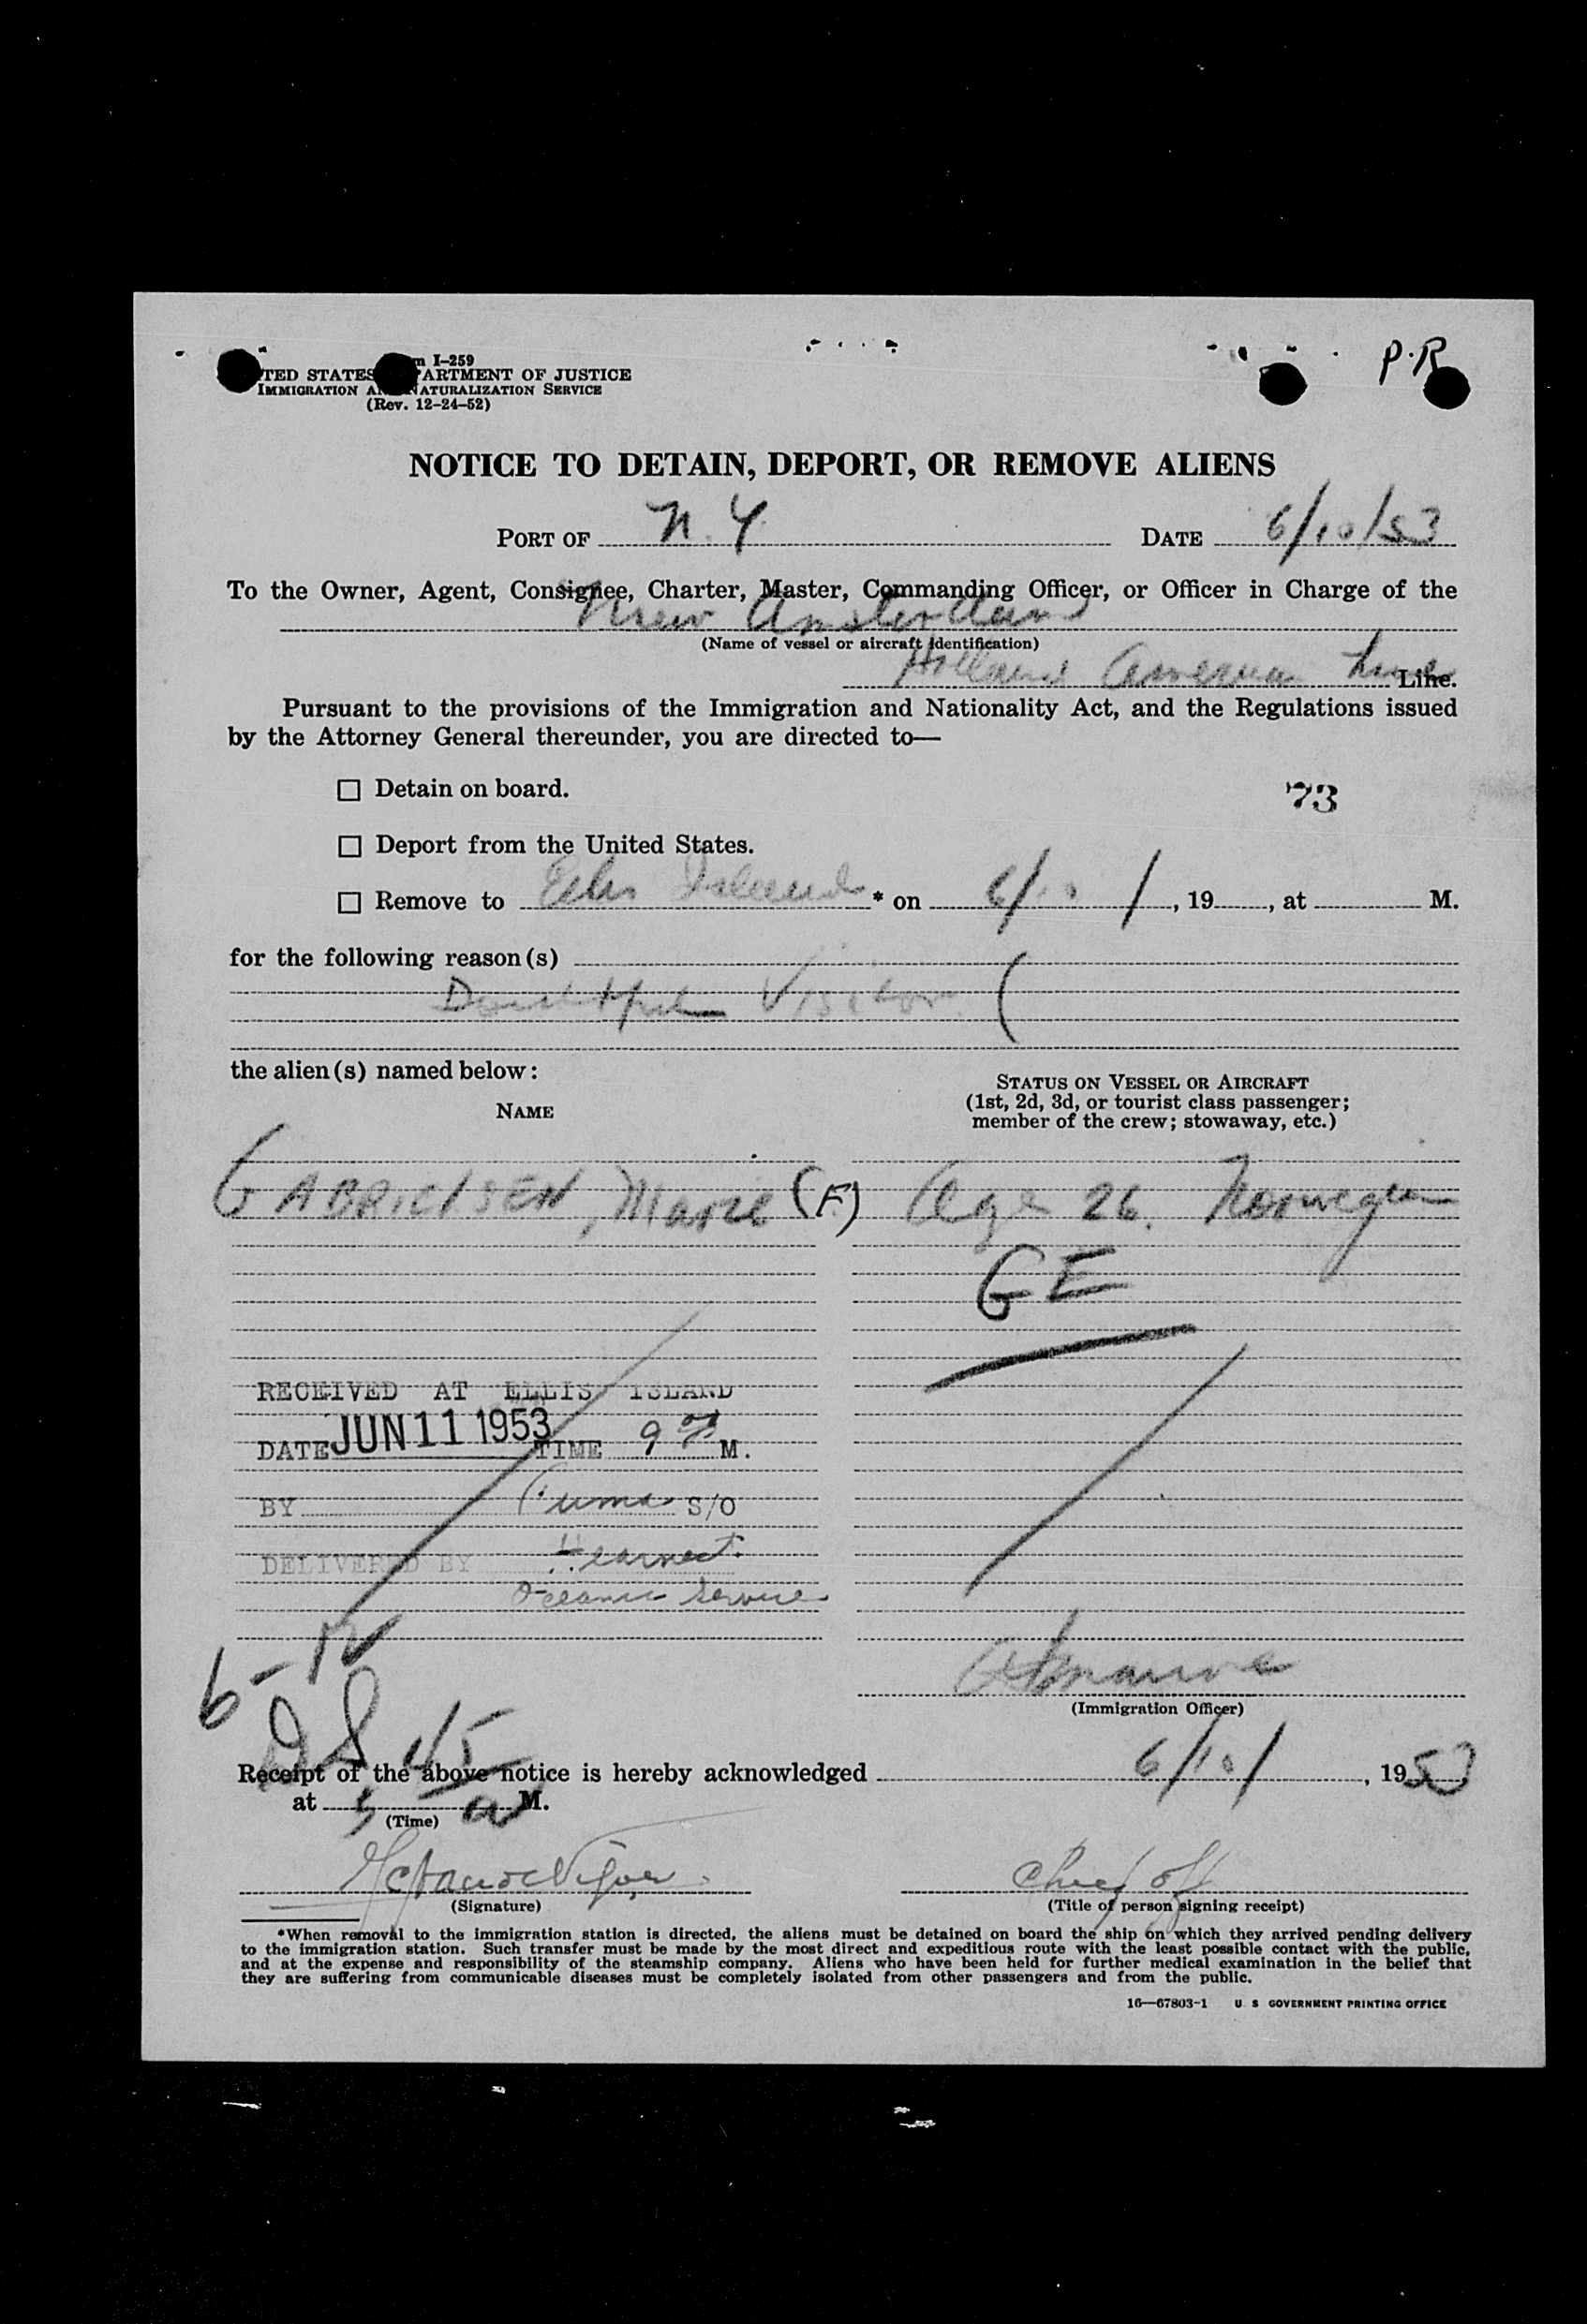 P.R
m I-259
TED STATES ARTMENT OF JUSTICE
IMMIGRATION A NATURALIZATION SERVICE
(Rev. 12-24-52)
NOTICE TO DETAIN, DEPORT, OR REMOVE ALIENS
PORT OF N.Y. DATE 6/10/53
To the Owner, Agent, Consignee, Charter, Master, Commanding Officer, or Officer in Charge of the
New Amsterdam
(Name of vessel or aircraft identification)
Holland American Line Line.
Pursuant to the provisions of the Immigration and Nationality Act, and the Regulations issued
by the Attorney General thereunder, you are directed to—
☐ Detain on board.
73
☐ Deport from the United States.
☐ Remove to Ellis Island * on 6/10/, 19, at M.
for the following reason(s)
Doubtful Visitor (
the alien(s) named below:
NAME
STATUS ON VESSEL OR AIRCRAFT
(1st, 2d, 3d, or tourist class passenger;
member of the crew; stowaway, etc.)
GABRICISEN, Marie (F) Age 26. Norwegian
GE
RECEIVED AT ELLIS ISLAND
DATE JUN 11 1953 TIME 9 M.
BY S/O
DELIVERED BY
Oceanic Service
(Immigration Officer)
Receipt of the above notice is hereby acknowledged 6/10/, 1953
at M.
(Time)
Chief off
(Signature)
(Title of person signing receipt)
*When removal to the immigration station is directed, the aliens must be detained on board the ship on which they arrived pending delivery
to the immigration station. Such transfer must be made by the most direct and expeditious route with the least possible contact with the public,
and at the expense and responsibility of the steamship company. Aliens who have been held for further medical examination in the belief that
they are suffering from communicable diseases must be completely isolated from other passengers and from the public.
16—67803-1 U S GOVERNMENT PRINTING OFFICE